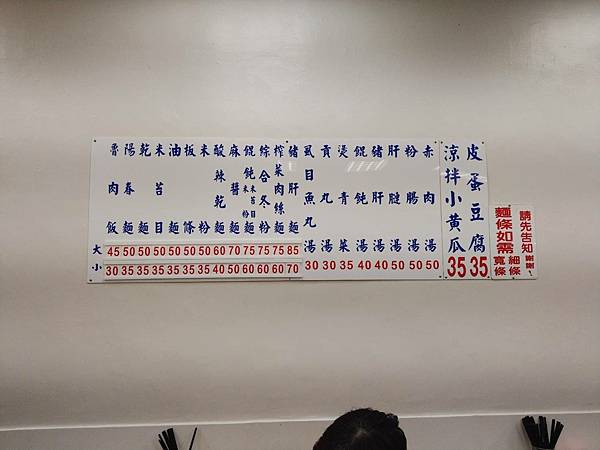 魯肉飯 45 30
陽春麵 50 35
乾麵 50 35
米苔目 50 35
油麵 50 35
板條 50 35
米粉 50 35
酸辣乾麵 60 40
麻醬麵 70 50
餛飩麵 米粉 米苔目 75 60
綜合冬粉 75 60
榨菜肉絲麵 75 60
豬肝麵 85 70
大
小
虱目魚丸湯 30
貢丸湯 30
燙青菜 35
餛飩湯 40
豬肝湯 40
肝腱湯 50
粉腸湯 50
赤肉湯 50
涼拌小黃瓜 35
皮蛋豆腐 35
麵條如需 寬條 細條
請先告知 謝謝